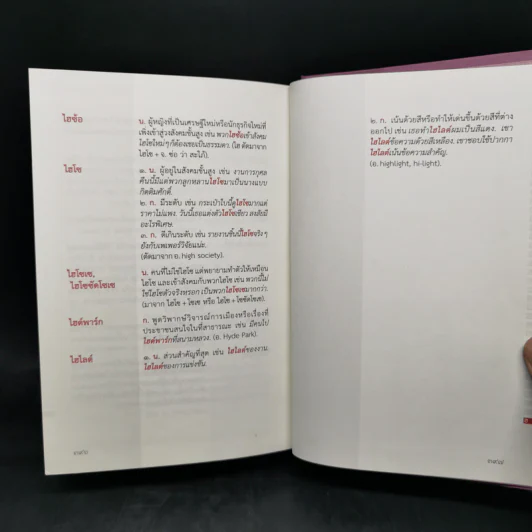 ไฮซ้อ น. ผู้หญิงที่เป็นเศรษฐีใหม่หรือนักธุรกิจใหม่ที่
เพิ่งเข้าสู่วงสังคมชั้นสูง เช่น พวกไฮซ้อเข้าสังคม
ไฮโซใหม่ๆก็ต้องเขอเป็นธรรมดา. (ไฮ ตัดมาจาก
ไฮโซ + จ. ซ่อ ว่า สะใภ้).
ไฮโซ ๑. น. ผู้อยู่ในสังคมชั้นสูง เช่น งานการกุศล
คืนนี้มีแต่พวกลูกหลานไฮโซมาเป็นนางแบบ
กิตติมศักดิ์.
๒. ก. มีระดับ เช่น กระเป๋าใบนี้ดูไฮโซมากแต่
ราคาไม่แพง. วันนี้เธอแต่งตัวไฮโซเชียว สงสัยมี
อะไรพิเศษ.
๓. ก. ดีเกินระดับ เช่น รายงานชิ้นนี้ไฮโซจริงๆ
ยังกับเพเพอร์วิจัยแน่ะ.
(ตัดมาจาก อ. high society).
ไฮโซเช, น. คนที่ไม่ใช่ไฮโซ แต่พยายามทำตัวให้เหมือน
ไฮโซซัดโซเซ ไฮโซ และเข้าสังคมกับพวกไฮโซ เช่น พวกนี้ไม่
ใช่ไฮโซตัวจริงหรอก เป็นพวกไฮโซเซมากกว่า.
(มาจาก ไฮโซ + โซเซ หรือ ไฮโซ + โซซัดโซเซ).
ไฮด์พาร์ก ก. พูดวิพากษ์วิจารณ์การเมืองหรือเรื่องที่
ประชาชนสนใจในที่สาธารณะ เช่น มีคนไป
ไฮด์พาร์กที่สนามหลวง. (อ. Hyde Park).
ไฮไลต์ ๑. น. ส่วนสำคัญที่สุด เช่น ไฮไลต์ของงาน.
ไฮไลต์ของการแข่งขัน.
๒. ก. เน้นด้วยสีหรือทำให้เด่นขึ้นด้วยสีที่ต่าง
ออกไป เช่น เธอทำไฮไลต์ผมเป็นสีแดง. เขา
ไฮไลต์ข้อความด้วยสีเหลือง. เขาชอบใช้ปากกา
ไฮไลต์เน้นข้อความสำคัญ.
(อ. highlight, hi-light).